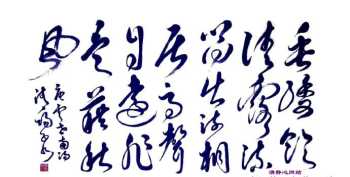 垂緌飲
清露流
響出疏桐
居高聲
自遠非
是藉秋
風